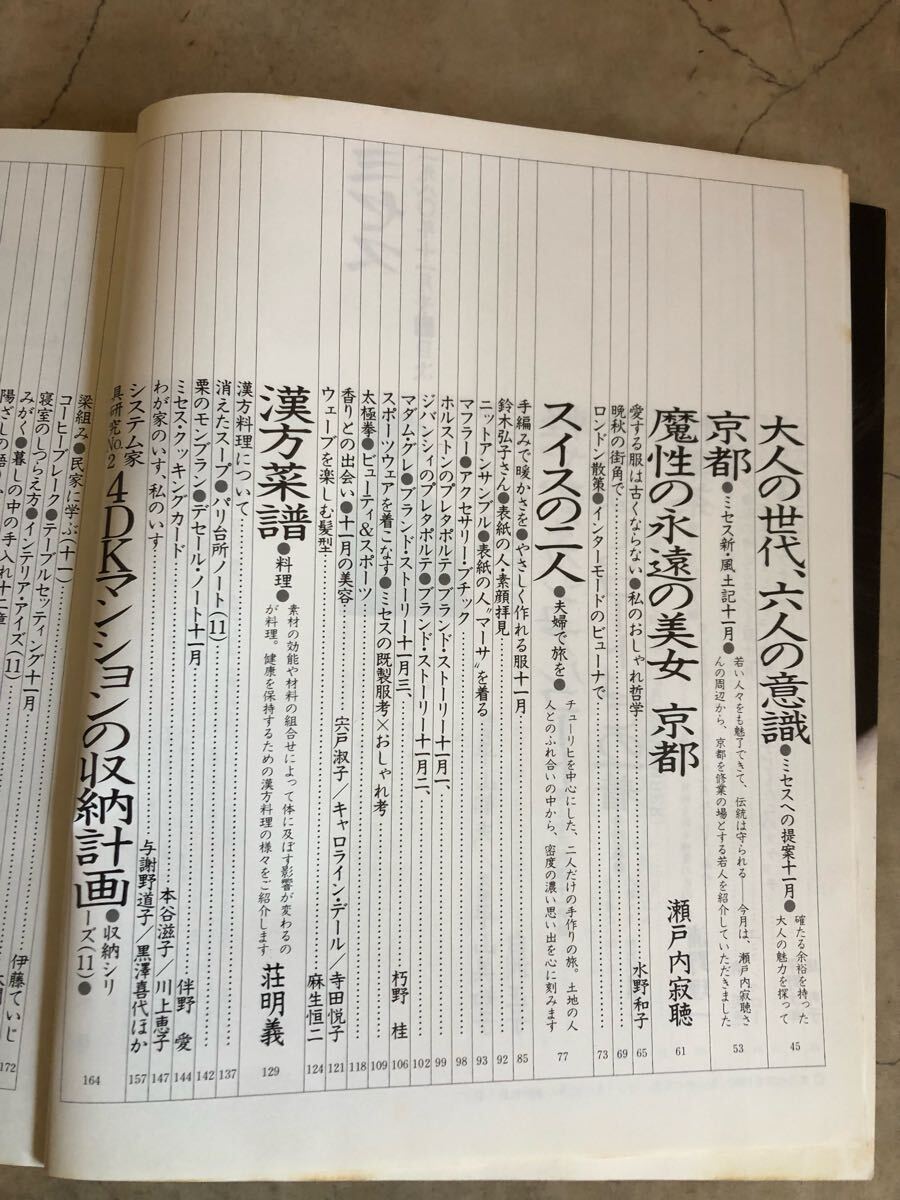 大人の世代、六人の意識●ミセスへの提案十一月●確たる余裕を持った
大人の魅力を探って
45
京都●ミセス新・風土記十一月●若い人々をも魅了できて、伝統は守られる　今月は、瀬戸内寂聴さ
んの周辺から、京都を修業の場とする若人を紹介していただきました
53
魔性の永遠の美女 京都　瀬戸内寂聴
61
愛する服は古くならない●私のおしゃれ哲学……水野和子
65
晩秋の街角で……
69
ロンドン散策●インターモードのビューナで……
73
スイスの二人●夫婦で旅を●チューリヒを中心にした、二人だけの手作りの旅。土地の人
人とのふれ合いの中から、密度の濃い思い出を心に刻みます
77
手編みで暖かさを●やさしく作れる服十一月……
85
鈴木弘子さん●表紙の人・素顔拝見……
92
ニットアンサンブル●表紙の人〝マーサ〟を着る……
93
マフラー●アクセサリーブチック……
98
ホルストンのプレタポルテ●ブランド・ストーリー十一月一、……
99
ジバンシィのプレタポルテ●ブランド・ストーリー十一月二、……
102
マダム・グレ●ブランド・ストーリー十一月三、……朽野　桂
106
スポーツウェアを着こなす●ミセスの既製服考×おしゃれ考
109
太極拳●ビューティ&スポーツ……
118
香りとの出会い●十一月の美容……宍戸淑子／キャロライン・デール／寺田悦子
121
ウェーブを楽しむ髪型……麻生恒二
124
漢方菜譜●料理●素材の効能や材料の組合せによって体に及ぼす影響が変わるの
が料理。健康を保持するための漢方料理の様々をご紹介します
荘明義
129
漢方料理について……
137
消えたスープ●パリ台所ノート(11)……
142
栗のモンブラン●デセール・ノート十一月
144
ミセス・クッキングカード……伴野　愛
147
わが家のいす、私のいす……本谷滋子／川上恵子
157
与謝野道子／黒澤喜代ほか
システム家
具研究No.2
4DKマンションの収納計画●収納シリ
ーズ(11)●
164
梁組み●民家に学ぶ(十一)……伊藤ていじ
172
コーヒーブレーク●テーブルセッティング十一月
寝室のしつらえ方●インテリア・アイズ(11)
みがく●暮しの中の手入れ十二章